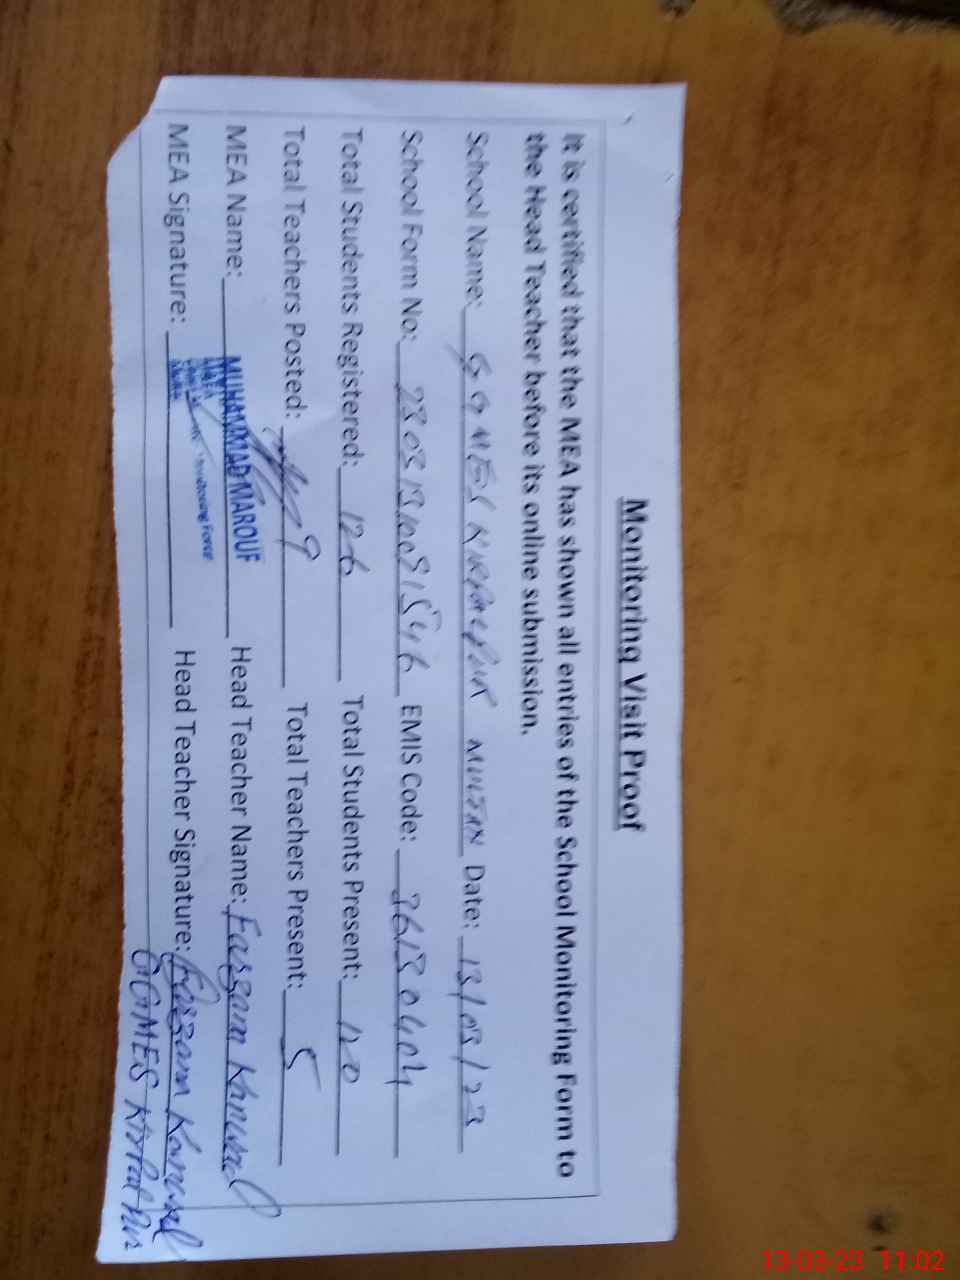 Monitoring Visit Proof
It is certified that the MEA has shown all entries of the School Monitoring Form to
the Head Teacher before its online submission.
School Name: GGMES KIRPALPUR MULTAN Date: 13/03/23
School Form No: EMIS Code: 36130404
Total Students Registered: 126 Total Students Present: 120
Total Teachers Posted: 9 Total Teachers Present: 5
MEA Name: MUHAMMAD MAROUF Head Teacher Name: Farzana Kanwal
MEA
Monitoring Force
MEA Signature: Head Teacher Signature: Farzana Kanwal
GGMES
13-03-23 11:02